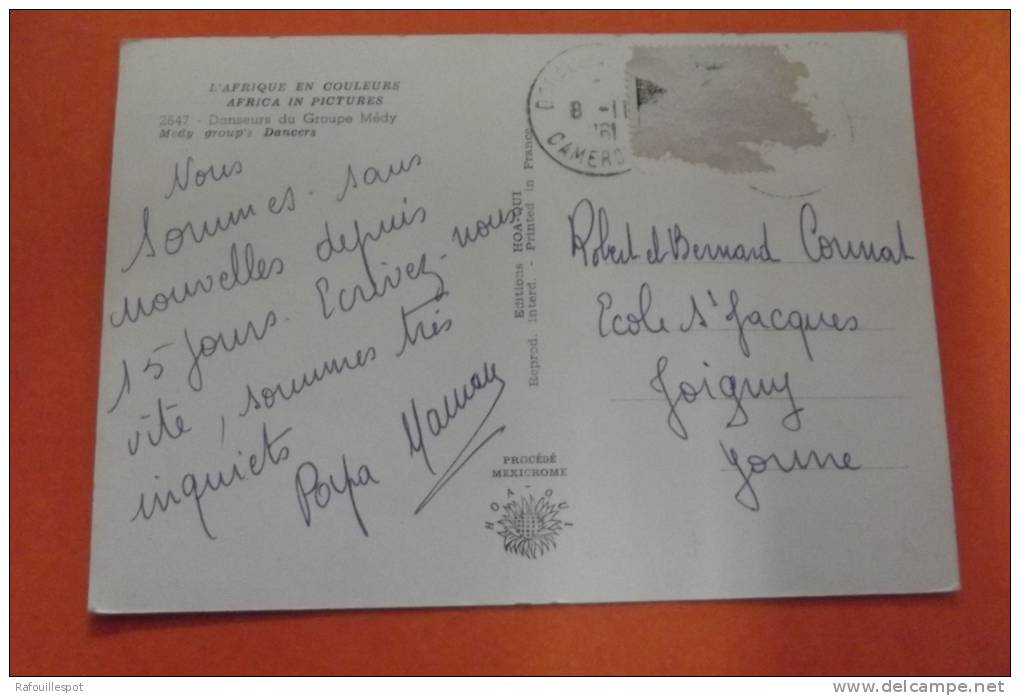 L'AFRIQUE EN COULEURS
AFRICA IN PICTURES
2647 - Danseurs du Groupe Médy
Medy group's Dancers
Nous
sommes. sans
nouvelles depuis
15 jours. Ecrivez-nous
vite, sommes très
inquiets
Papa Maman
Editions HOA-QUI
Reprod. interd. - Printed in France
PROCÉDÉ
MEXICROME
HOA-QUI
8 -11
CAMERO
Robert et Bernard
Ecole St Jacques
Joigny
Yonne
Rafouillespot
delcampe.net